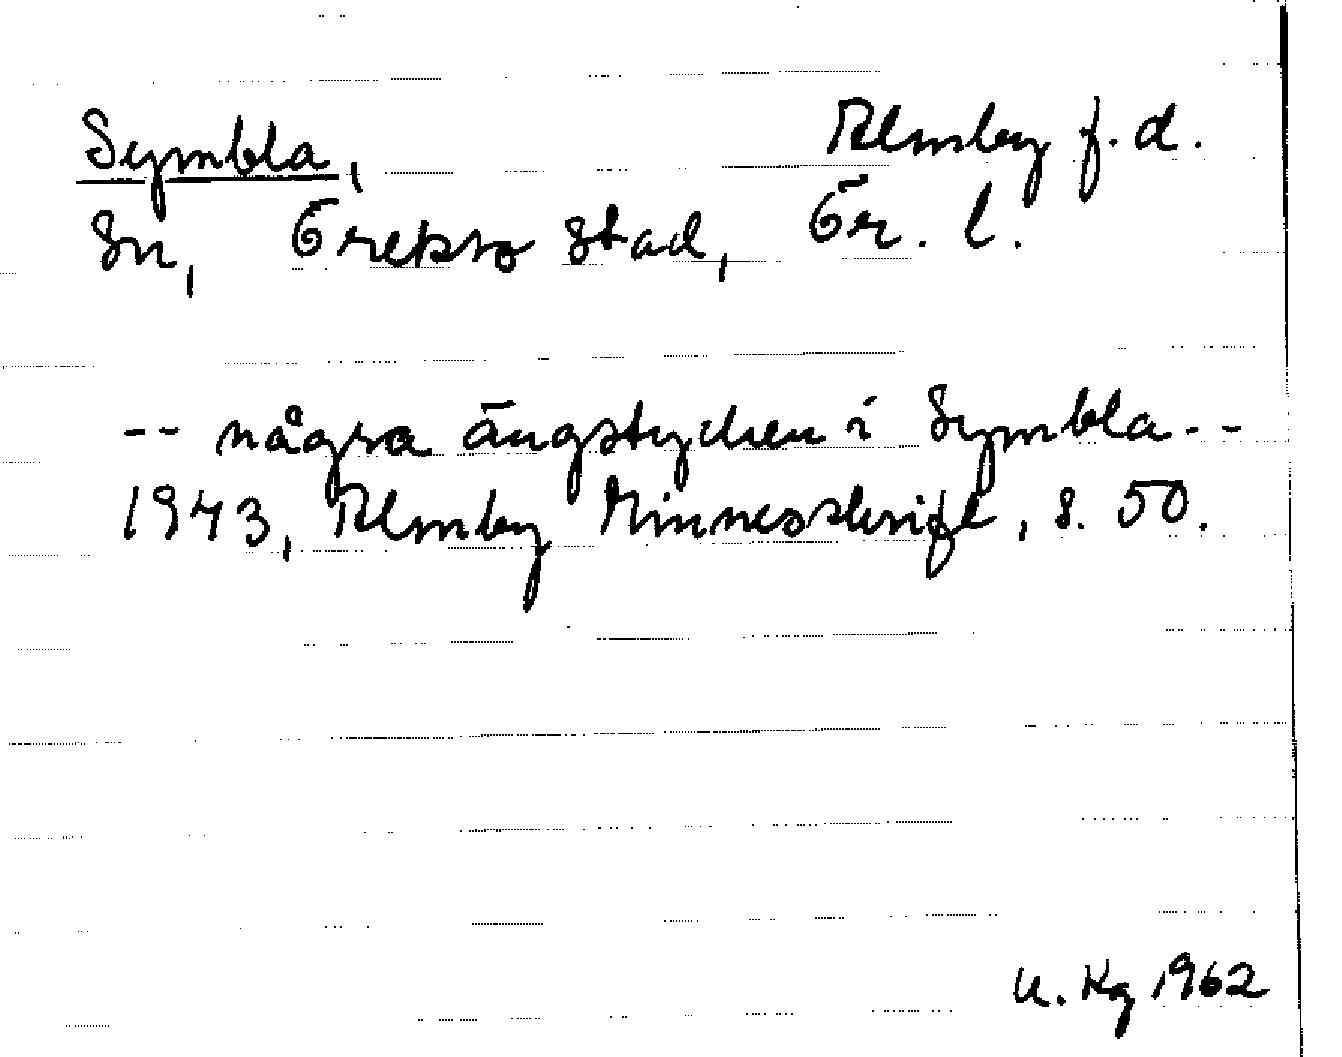 Symbla, Almby f.d.
sn, Örebro stad, Ör. l.
-- några ängstycken i Symbla --
1943, Almby Minnesskrift, s. 50.
U. Hg 1962